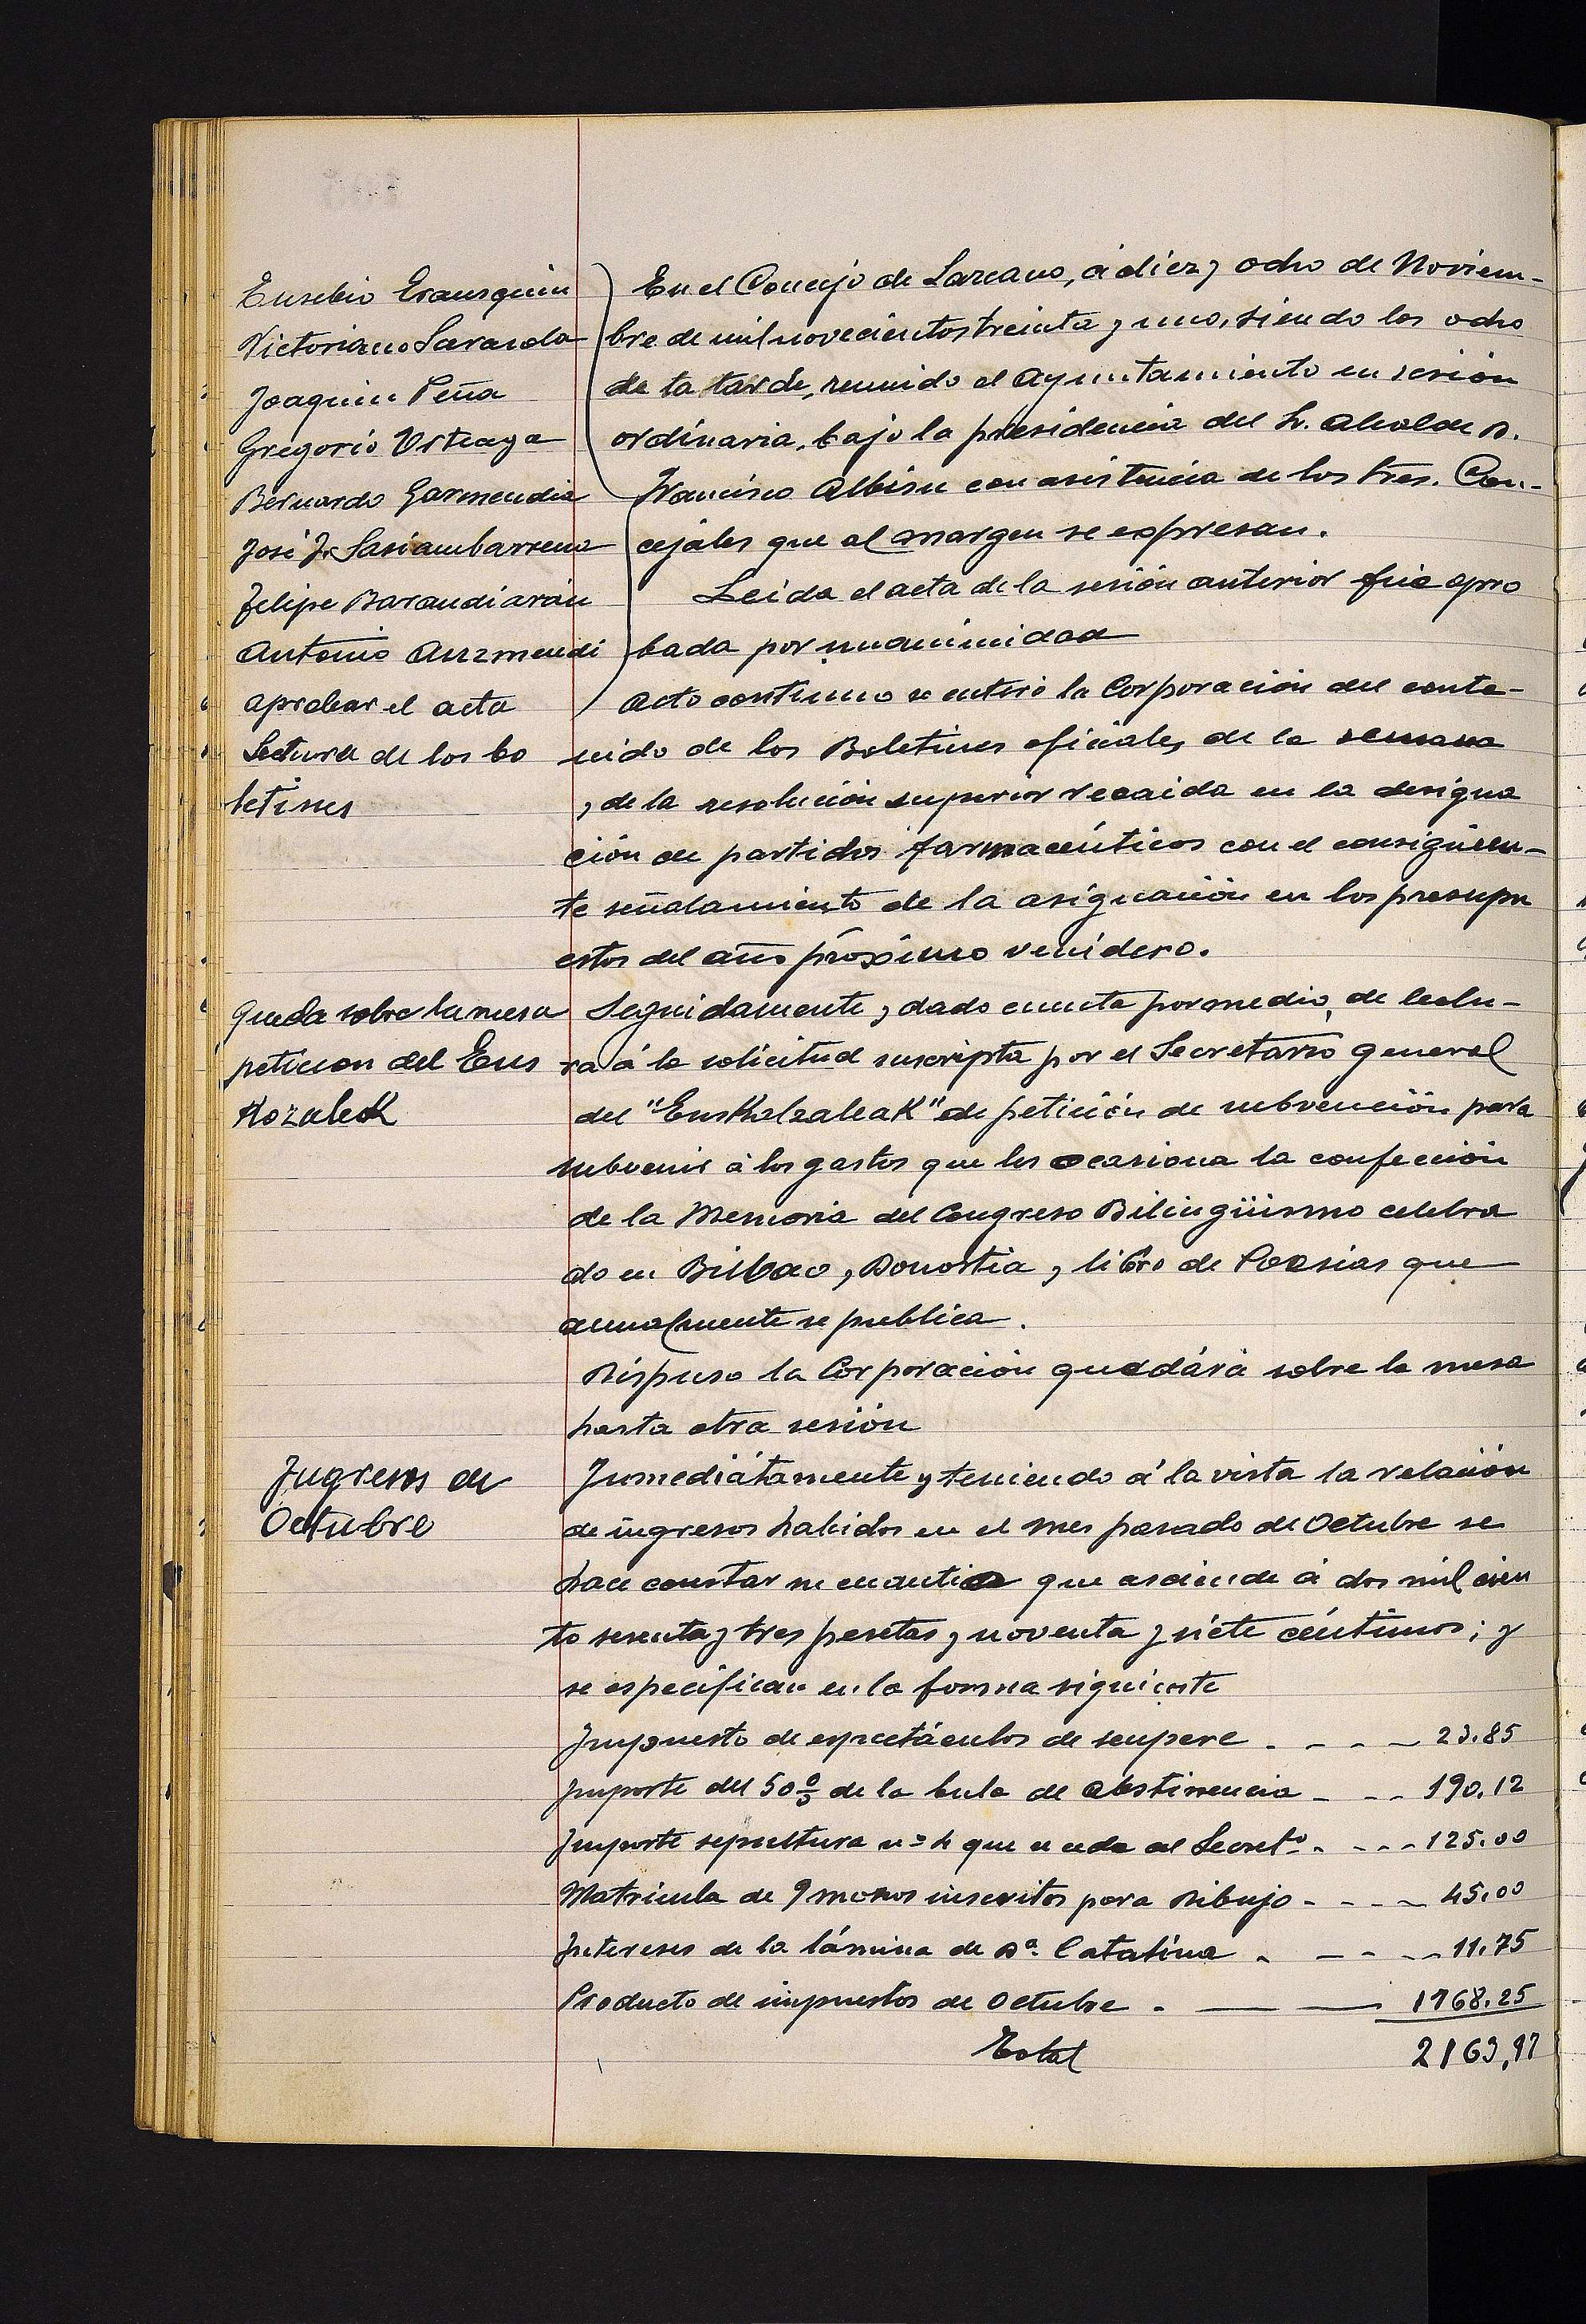 Eusebio Erausquin
Victoriano Sarasola
Joaquin Peña
Gregorio Usteaga
Bernardo Garmendia
José Jn Sasiambarrena
Felipe Barandiarán
Antonio Auzmendi
aprobar el acta
Lectura de los bo
letines
En el Concejo de Lazcano, á diez y ocho de Noviem-
bre de mil novecientos treinta y uno, siendo las ocho
de la tarde, reunido el Ayuntamiento en sesión
ordinaria, bajo la presidencia del Sr. Alcalde D.
Francisco Albisu con asistencia de los Sres. Con-
cejáles que al margen se expresan.
Leida el acta de la sesión anterior fué apro
bada por unanimidad
Acto continuo se enteró la Corporación del conte-
nido de los Boletines oficiales de la semana
y de la resolución superior recaida en la designa
ción de partidos farmacéuticos con el consiguien-
te señalamiento de la asignación en los presupu
estos del año próximo venidero.
Queda sobre la mesa
peticion del Eus
Kozaleak
Seguidamente y dado cuenta por medio de lectu-
ra á la solicitud suscripta por el Secretario general
del "EusKalzaleaK" de petición de subvención para
subvenir á los gastos que les ocasiona la confección
de la Memoria del Congreso Bilingüismo celebra
do en Bilbao y Donostia y libro de Poesias que
anualmente se publica.
Dispuso la Corporación quedárá sobre la mesa
hasta otra sesión
Ingresos de
Octubre
Inmediátamente y teniendo á la vista la relación
de ingresos habidos en el mes pasado de Octubre se
hace constar su cuantia que asciende á dos mil cien
to sesenta y tres pesetas y noventa y siete céntimos; y
se especifican en la forma siguiente
Impuesto de espectáculos de seupere - - - - 23.85
Importe del 50 % de la bula de Abstinencia - - - 190.12
Importe sepultura nº 4 que se cede al Secretº - - - - 125.00
Matricula de 9 mozos inscritos para Dibujo - - - - 45.00
Intereses de la lámina de Dª. Catalina - - - - 11.75
Producto de impuestos de Octubre - — — 1768.25
Total 2163,97